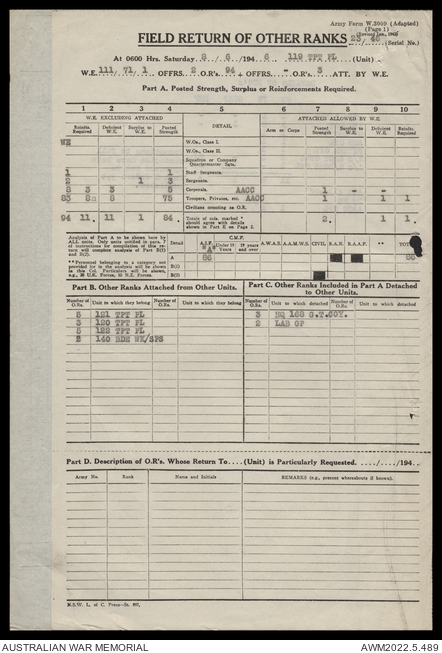 Army Form W.3009 (Adapted)
(Page 1)
FIELD RETURN OF OTHER RANKS
(Serial No.)
At 0600 Hrs. Saturday 8 / 6 /194 6 119 TPT PL (Unit)
W.E. 111/ 71/ 1 OFFRS. 2 O.R's. 94 + OFFRS. - O.R's. 3 ATT. BY W.E.
Part A. Posted Strength, Surplus or Reinforcements Required.
1 2 3 4 5 6 7 8 9 10
W.E. EXCLUDING ATTACHED DETAIL ATTACHED ALLOWED BY W.E.
Reinfts. Required Deficient W.E. Surplus to W.E. Posted Strength Arm or Corps Posted Strength Surplus to W.E. Deficient W.E. Reinfts. Required
WE W.Os., Class I.
W.Os., Class II.
Squadron or Company Quartermaster Sgts.
1 1 Staff Sergeants.
2 1 3 Sergeants.
8 3 3 5 Corporals. AACC 1 - -
83 8 75 Troopers, Privates, etc. AACC 1 1 1
Civilians counting as O.R.
94 11. 11 1 84. Totals of cols. marked * should agree with details shown in Part E on Page 2. 2. 1 1.
Analysis of Part A to be shown here by ALL units. Only units entitled in para. 7 of instructions for compilation of this return will complete analysis of Part B(1) and B(2).
**Personnel belonging to a category not provided for in the analysis will be shown in this Col. Particulars will be shown, e.g., 20 U.K. Forces, 10 N.Z. Forces.
Detail A.I.F. C.M.F. Under 19 Years 19 years and over A.W.A.S. A.A.M.W.S. CIVIL R.A.N. R.A.A.F. **
A 86 86
B(1)
B(2)
Part B. Other Ranks Attached from Other Units.
Part C. Other Ranks Included in Part A Detached to Other Units.
Number of O.Rs. Unit to which they belong Number of O.Rs. Unit to which they belong Number of O.Rs. Unit to which detached Number of O.Rs. Unit to which detached
5 121 TPT PL 3 HQ 168 G.T.COY.
3 120 TPT PL 2 LAB GP
5 122 TPT PL
2 140 BDE WK/SPS
Part D. Description of O.R's. Whose Return To....(Unit) is Particularly Requested. ..../..../194..
Army No. Rank Name and Initials REMARKS (e.g., present whereabouts if known).
N.S.W. L. of C. Press—
AUSTRALIAN WAR MEMORIAL AWM2022.5.489